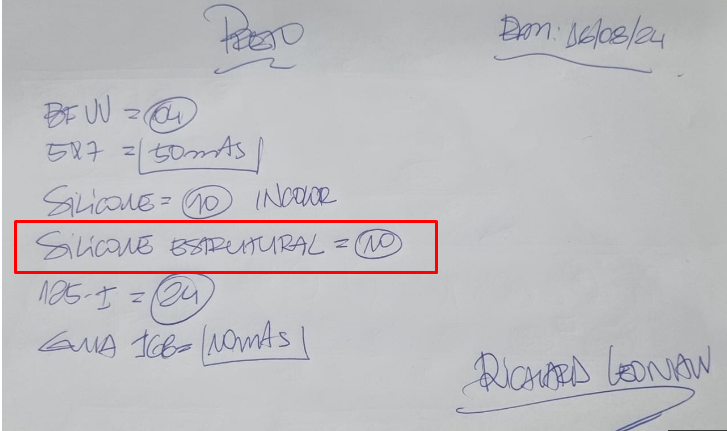 PRETO
DATA: 16/08/24
BFVV = 04
5X7 = 50mAS
SILICONE = 10 INCOLOR
SILICONE ESTRUTURAL = 10
125-I = 24
= 10mAS
RICHARD